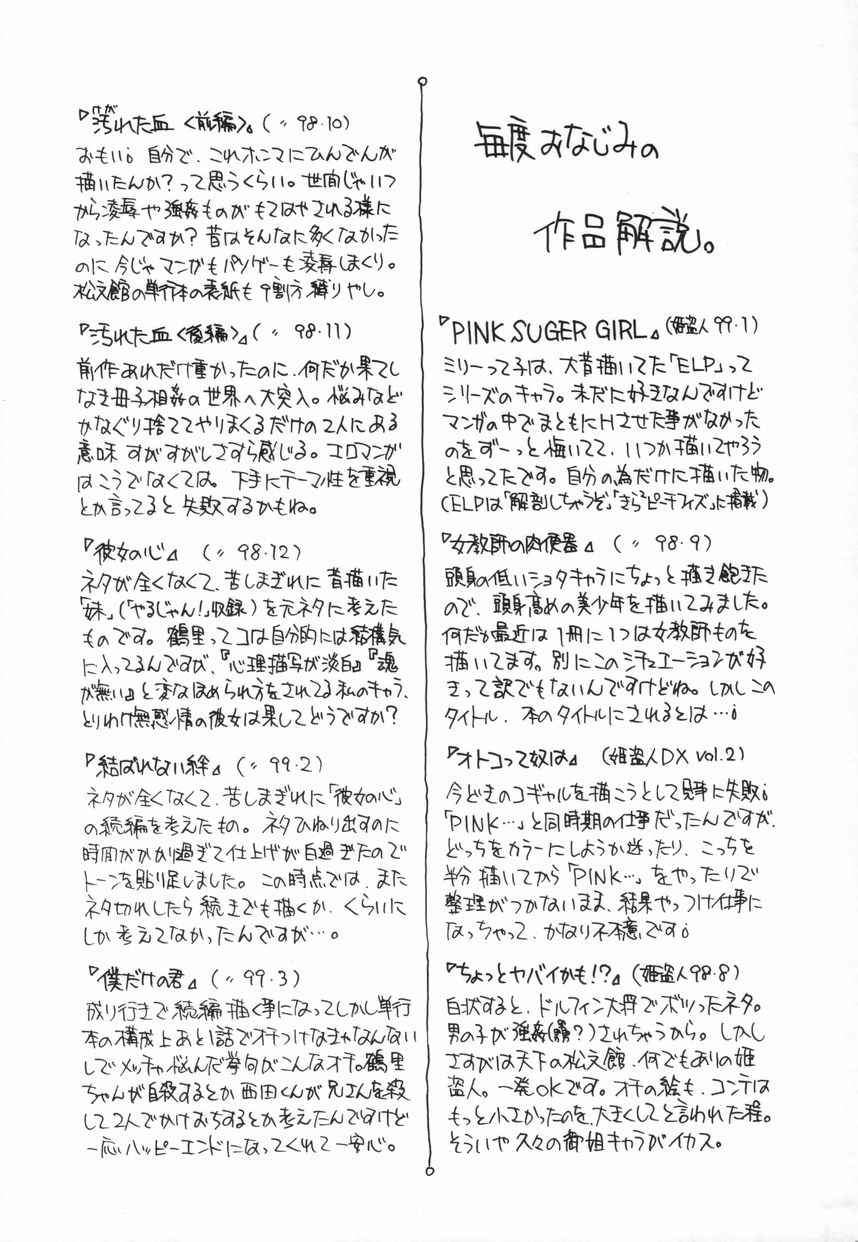 毎度おなじみの
作品解説。
『PINK SUGER GIRL』(姫盗人99・1)
ミリーって子は、大昔描いてた「ELP」って
シリーズのキャラ。未だに好きなんですけど
マンガの中でまともにHさせた事がなかった
のをずーっと悔いてて、いつか描いてやろう
と思ってたです。自分の為だけに描いた物。
(ELPは「解剖しちゃうぞ」「きらら ピーチフィズ」に掲載)
『女教師の肉便器』(〃 98・9)
頭身の低いショタキャラにちょっと描き飽きた
ので、頭身高めの美少年を描いてみました。
何だか最近は1冊に1つは女教師ものを
描いてます。別にこのシチュエーションが好
きって訳でもないんですけどね。しかしこの
タイトル、本のタイトルにされるとは…。
『オトコって奴は』(姫盗人DX vol.2)
今どきのコギャルを描こうとして見事に失敗。
「PINK…」と同時期の仕事だったんですが、
どっちをカラーにしようか迷ったり、こっちを
半分描いてから「PINK…」をやったりで
整理がつかないまま、結果やっつけ仕事に
なっちゃって、かなり不本意です。
『ちょっとヤバイかも!?』(姫盗人98・8)
白状すると、ドルフィン大将でボツったネタ。
男の子が強姦(?)されちゃうから。しかし
さすがは天下の松文館、何でもありの姫
盗人。一発OKです。オチの絵も、コンテは
もっと小さかったのを、大きくしてと言われた程。
そういや久々の御姐キャラがイカス。
『汚れた血〈前編〉』(〃 98・10)
おもい。自分で、これホンマにひんでんが
描いたんか?って思うくらい。世間じゃいつ
から凌辱や強姦ものがもてはやされる様に
なったんですか?昔はそんなに多くなかった
のに今じゃマンガもパソゲーも凌辱しまくり。
松文館の単行本の表紙も9割方縛りやし。
『汚れた血〈後編〉』(〃 98・11)
前作あれだけ重かったのに、何だか果てし
なき母子相姦の世界へ大突入。悩みなど
かなぐり捨ててやりまくるだけの2人にある
意味すがすがしさすら感じる。エロマンガ
はこうでなくては。下手にテーマ性を重視
とか言ってると失敗するかもね。
『彼女の心』(〃 98・12)
ネタが全くなくて、苦しまぎれに昔描いた
「妹」(「やるじゃん!」収録)を元ネタに考えた
ものです。鶴里ってコは自分的には結構気
に入ってるんですが、『心理描写が淡白』『魂
が無い』と変なほめられ方をされてる私のキャラ、
とりわけ無感情の彼女は果してどうですか?
『結ばれない絆』(〃 99・2)
ネタが全くなくて、苦しまぎれに「彼女の心」
の続編を考えたもの。ネタひねり出すのに
時間がかかり過ぎて仕上げが白過ぎたので
トーンを貼り足しました。この時点では、また
ネタ切れしたら続きでも描くか、くらいに
しか考えてなかったんですが…。
『僕だけの君』(〃 99・3)
成り行きで続編描く事になってしかし単行
本の構成上あと1話でオチつけなきゃなんない
しでメッチャ悩んだ挙句がこんなオチ。鶴里
ちゃんが自殺するとか西田くんが兄さんを殺
して2人でかけおちするとか考えたんですけど
一応ハッピーエンドになってくれて一安心。